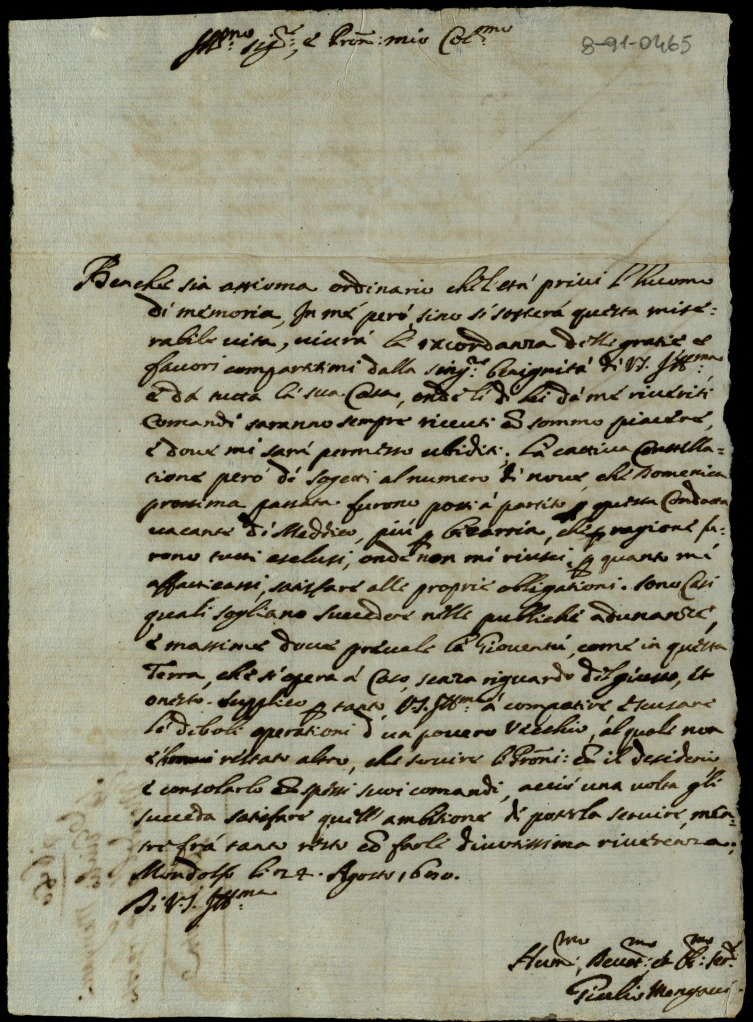 Ill.mo Sig.re, e Pron: mio Col.mo
8-91-0465
Benche sia assioma ordinario che l'età privi l'huomo
di memoria, In me però sino si sosterà questa mise-
rabile vita, viverà la ricordanza delle gratie e
favori compartitimi dalla sing.re benignità di V.S. Ill.ma,
e da tutta la sua Casa, onde li di lei da me riveriti
Comandi saranno sempre ricevuti co sommo piacere,
e dove mi sarà permesso ubiditi; La cattiva Constella-
tione però di sogetti al numero di nove, che Domenica
prossima passata furono posti à partito p questa Condotta
vacante di Meddico, più p bizarria, che p ragione fu-
rono tutti esclusi, onde non mi riuscì, p quanto mi
affaticassi, satisfare alle proprie obligationi. Sono Casi
quali sogliano succedere nelle publiche adunanze,
e massime dove prevale la Gioventù, come in questa
Terra, che si opera à Caso, senza riguardo del giusto, et
onesto. Supplico p tanto V.S. Ill.ma à compatire e scusare
le deboli operationi d'un povero Vecchio, al quale non
è restato altro, che servire li Proni: co il desiderio
e consolarlo co spessi suoi comandi, acciò una volta gli
succeda satisfare quell'ambitione di poterla servire, men-
tre frà tanto resto co farle divotissima riverenza.
Mondolfo li 24. Agosto
Di V.S. Ill.ma
Hum.mo, Devot.mo, et Obl.mo Ser.
Giulio